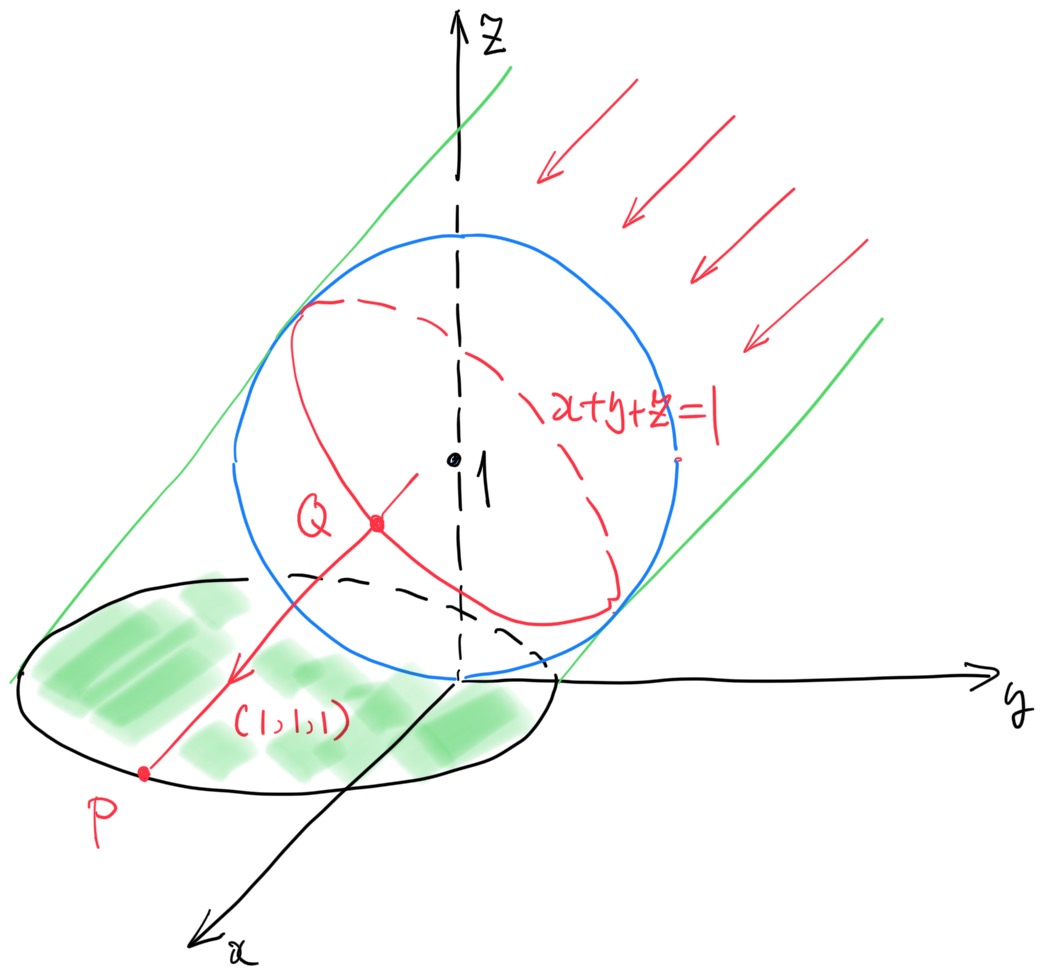 z
x+y+z=1
1
Q
(1,1,1)
y
P
x